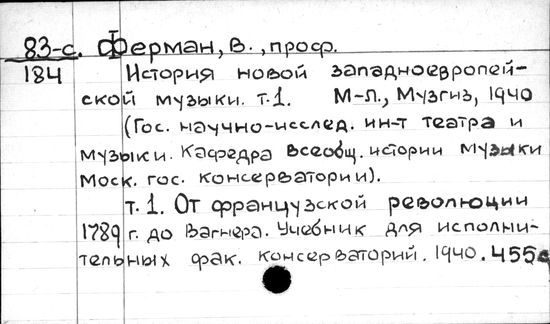 83-с. Ферман, В., проф.
184 История новой западноевропей-
ской музыки. т.1. М-Л., Музгиз, 1940
(Гос. научно-исслед. ин-т театра и
музыки. Кафедра всеобщ. истории музыки
Моск. гос. консерватории).
т. 1. От французской революции
1789 г. до Вагнера. Учебник для исполни-
тельных фак. консерваторий. 1940. 455с